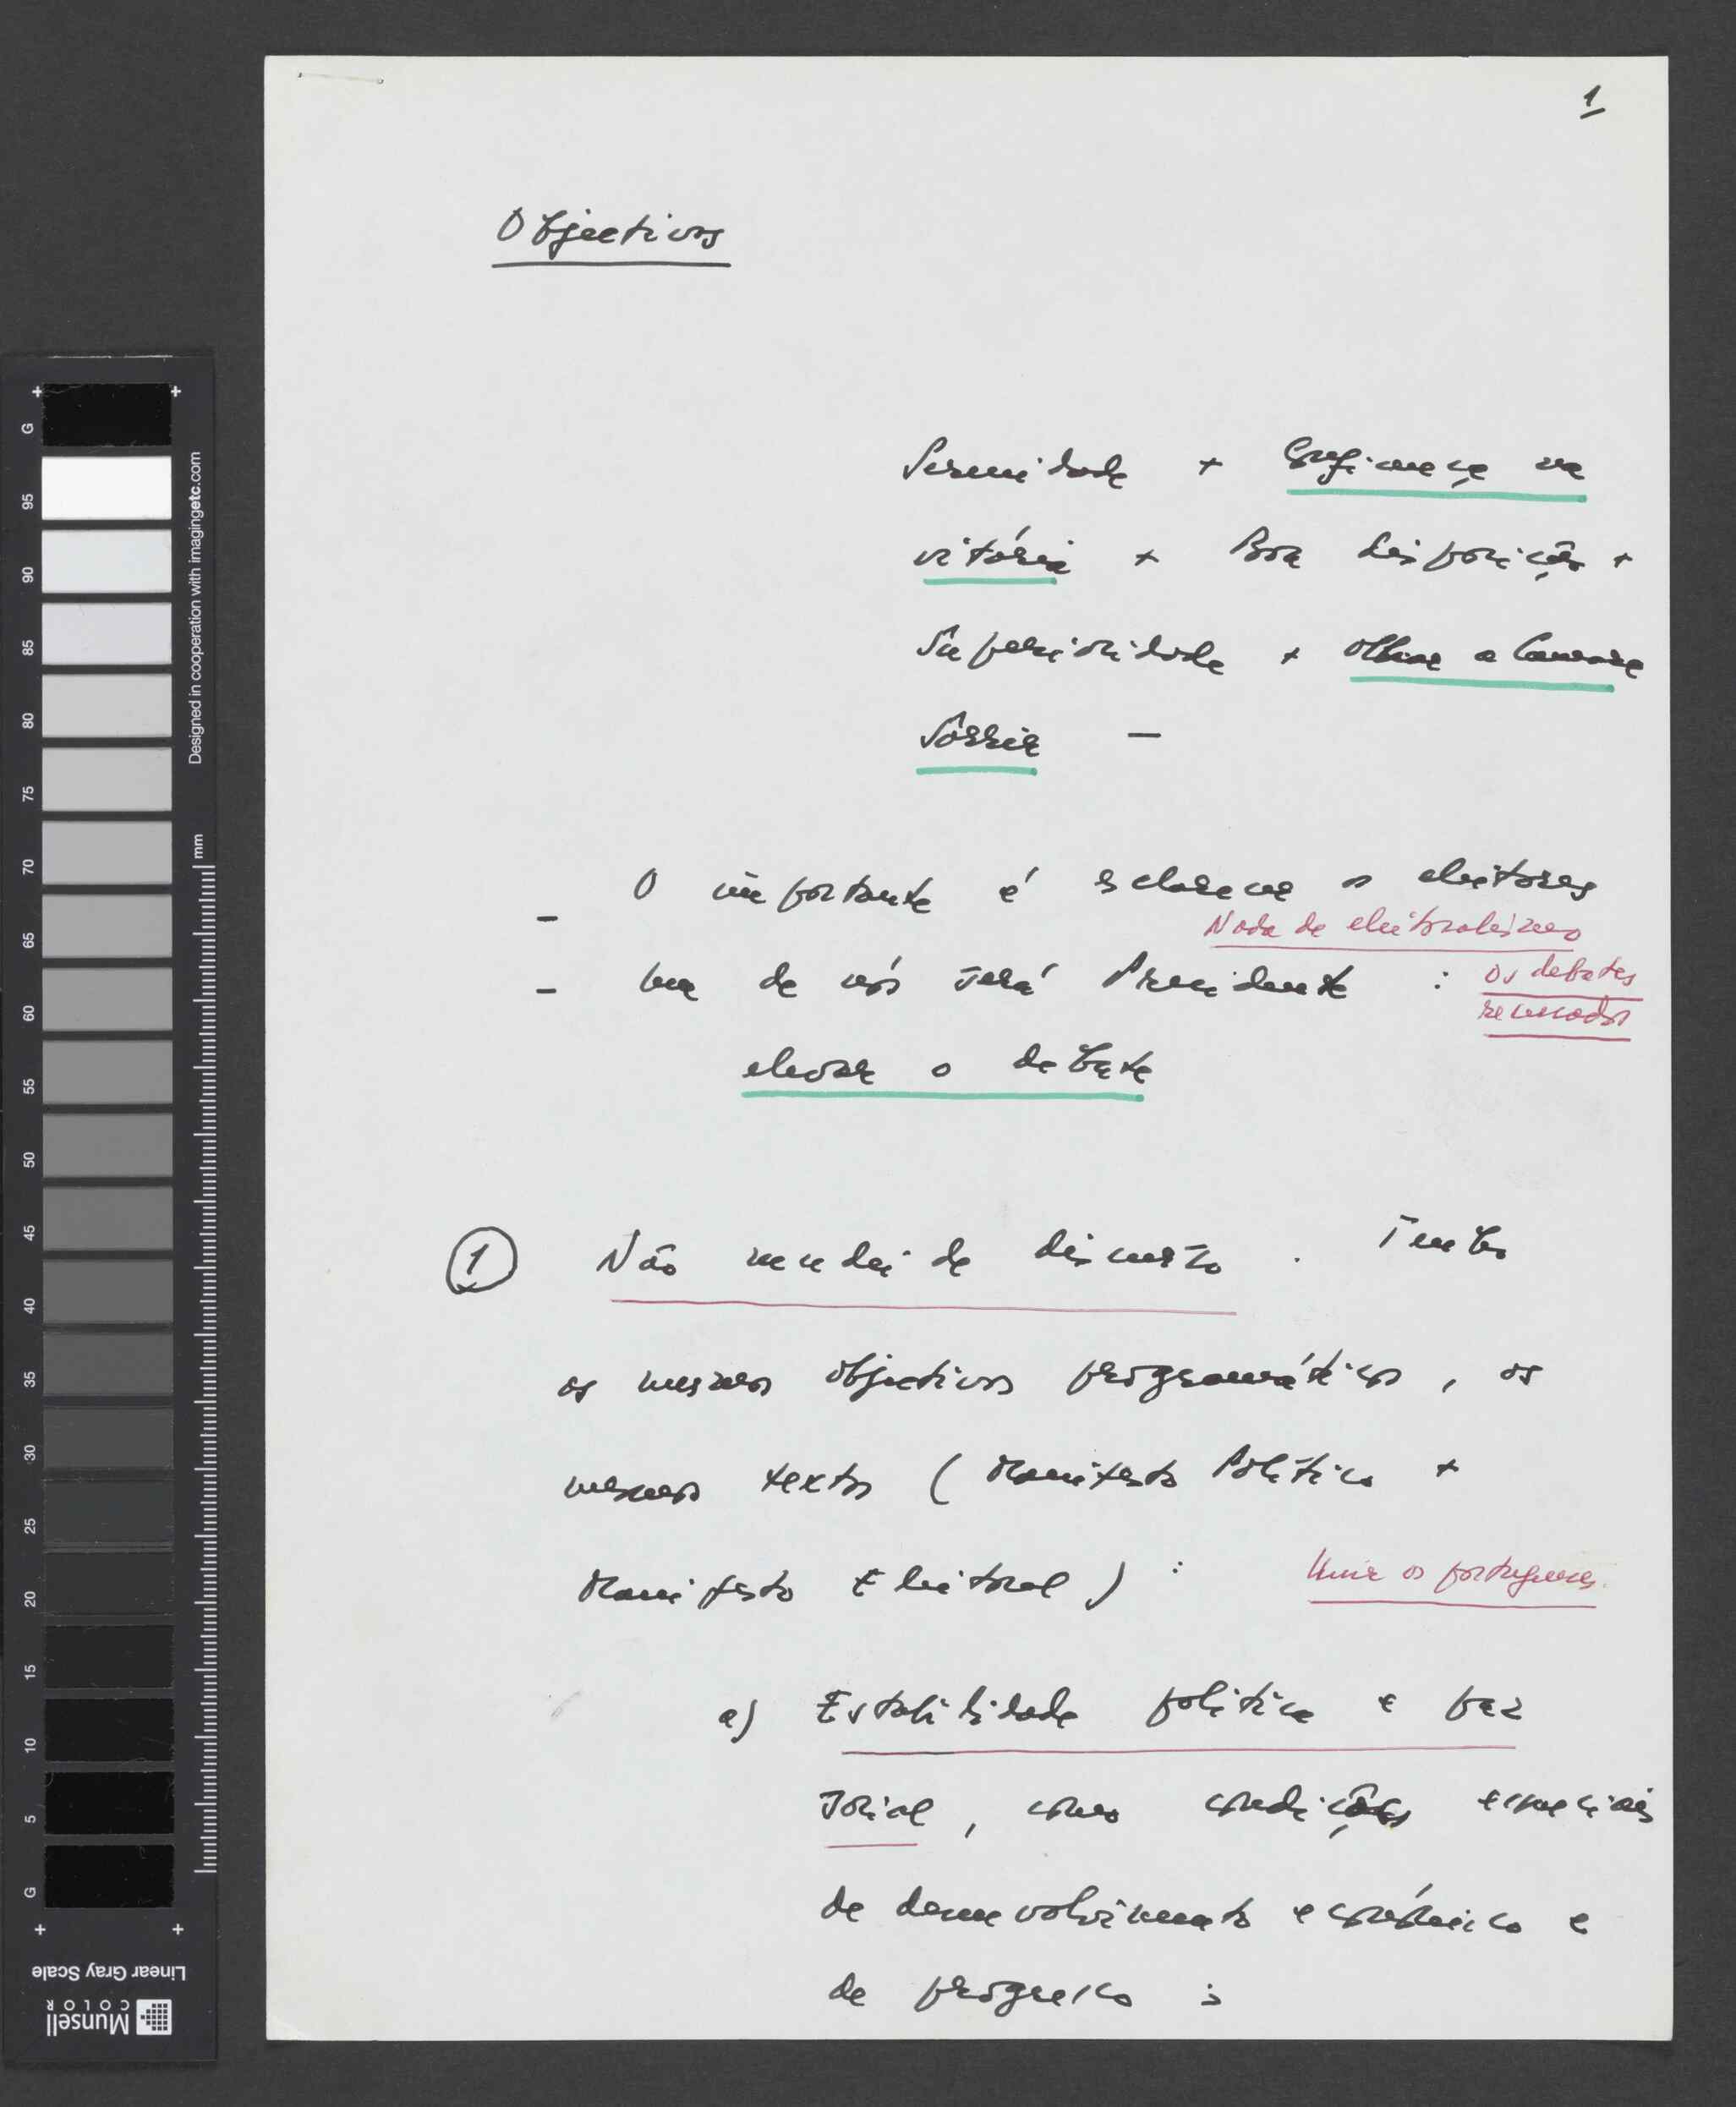 1
Objectivos
Serenidade + Confiança na
vitória + Boa disposição +
Superioridade + Olhar a Camara
Sorrir —
- O importante é esclarecer os eleitores
Nada de eleitoralismo
- Um de nós será Presidente : os debates
recusados
elevar o debate
① Não mudei de discurso . Tenho
os mesmos objectivos programáticos , os
mesmos textos ( Manifesto Político +
Manifesto Eleitoral ) : Unir os portugueses
a) Estabilidade política e paz
social , como condições essenciais
de desenvolvimento económico e
de progresso ;
G
95
90
85
80
75
70
65
60
55
50
45
40
35
30
25
20
15
10
5
G
Designed in cooperation with imagingetc.com
mm
Linear Gray Scale
Munsell
COLOR